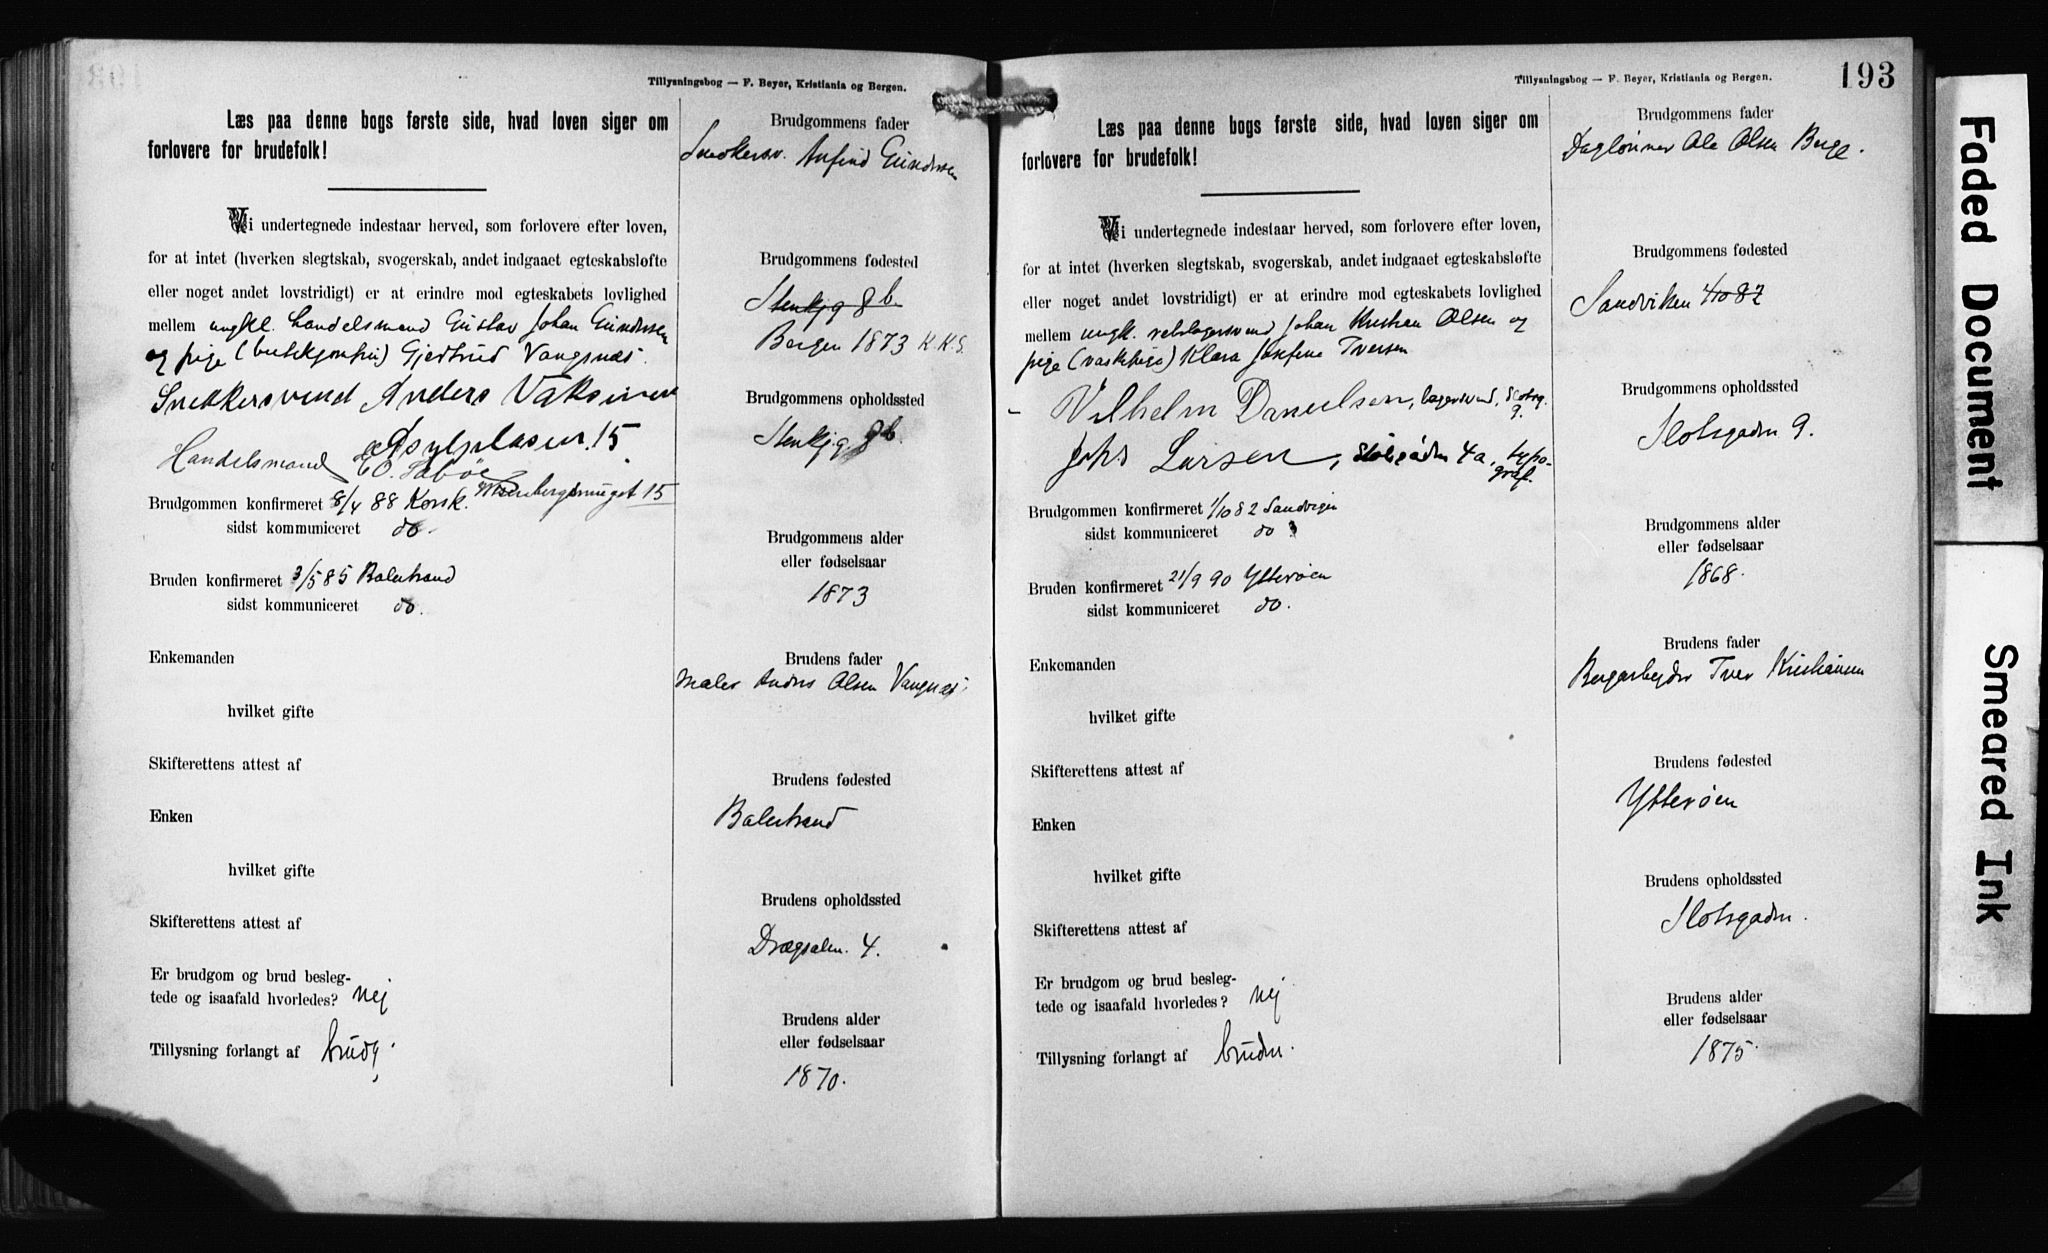 Tillysningsbog — F. Beyer, Kristiania og Bergen.
Læs paa denne bogs første side, hvad loven siger om
forlovere for brudefolk!
Vi undertegnede indestaar herved, som forlovere efter loven,
for at intet (hverken slegtskab, svogerskab, andet indgaaet egteskabsløfte
eller noget andet lovstridigt) er at erindre mod egteskabets lovlighed
mellem ungkl. handelsmand Gustav Johan Gundersen
og pige (butikjomfru) Gjertrud Vangsnæs.
Snekkersvend Anders Vaksinen
Asylplasen. 15
Handelsmand E O. Sabøe
15
Brudgommen konfirmeret 8/4 88 Korsk.
sidst kommuniceret do.
Bruden konfirmeret 3/5 85 Balestrand
sidst kommuniceret do.
Enkemanden
hvilket gifte
Skifterettens attest af
Enken
hvilket gifte
Skifterettens attest af
Er brudgom og brud besleg-
tede og isaafald hvorledes? Nej
Tillysning forlangt af brudg.
Brudgommens fader
Snedkersv. Anfind Gundersen
Brudgommens fødested
Stenkjg 8 b.
Bergen 1873 K.K.G.
Brudgommens opholdssted
Stenkjg 8b.
Brudgommens alder
eller fødselsaar
1873
Brudens fader
Maler Anders Olsen Vangnæs.
Brudens fødested
Balestrand
Brudens opholdssted
Drægsalm. 4.
Brudens alder
eller fødselsaar
1870.
Tillysningsbog — F. Beyer, Kristiania og Bergen.
193
Læs paa denne bogs første side, hvad loven siger om
forlovere for brudefolk!
Vi undertegnede indestaar herved, som forlovere efter loven,
for at intet (hverken slegtskab, svogerskab, andet indgaaet egteskabsløfte
eller noget andet lovstridigt) er at erindre mod egteskabets lovlighed
mellem ungk. rebslagersvend Johan Kristian Olsen og
pige (vaskepige) Klara Josefine Iversen
Vilhelm Danielsen, lagersvend, Slotsg.
9.
Johs Larsen, Slotsgaden 4a, typo-
graf.
Brudgommen konfirmeret 1/10 82 Sandvigen
sidst kommuniceret do
Bruden konfirmeret 21/9 90 Ytterøen
sidst kommuniceret do.
Enkemanden
hvilket gifte
Skifterettens attest af
Enken
hvilket gifte
Skifterettens attest af
Er brudgom og brud besleg-
tede og isaafald hvorledes? Nej
Tillysning forlangt af bruden.
Brudgommens fader
Daglønner Ole Olsen Berge.
Brudgommens fødested
Sandviken 4/10 82
Brudgommens opholdssted
Slotsgaden 9.
Brudgommens alder
eller fødselsaar
1868.
Brudens fader
Bergarbejder Iver Kristiansen
Brudens fødested
Ytterøen
Brudens opholdssted
Slotsgaden.
Brudens alder
eller fødselsaar
1875.
Faded Document
Smeared Ink